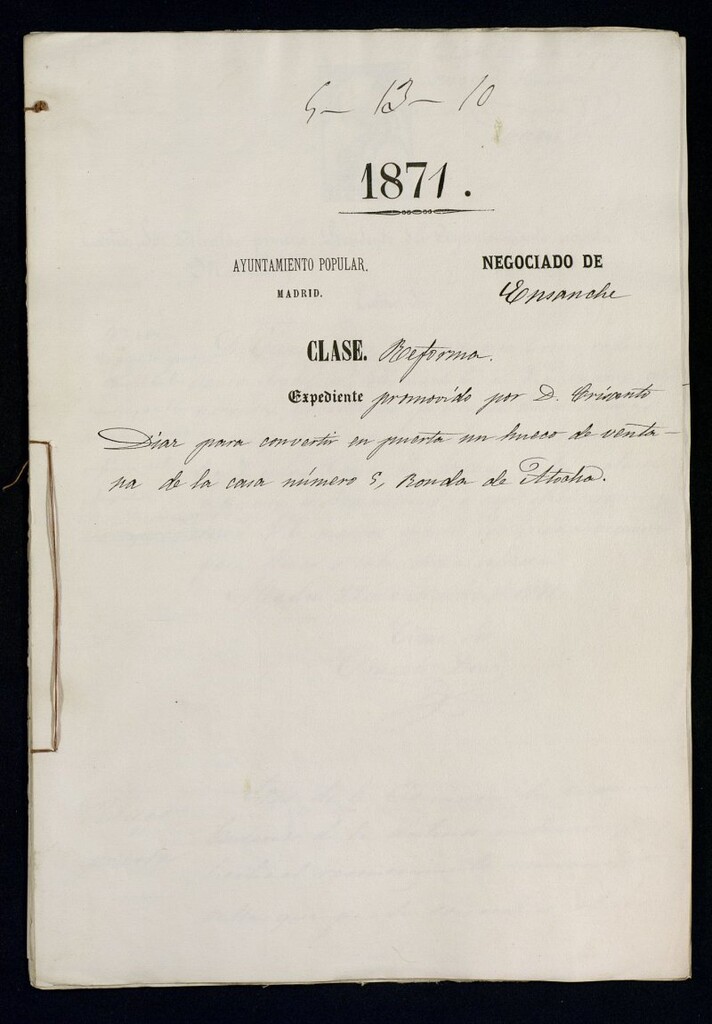 5- 13- 10
1871.
AYUNTAMIENTO POPULAR.
MADRID.
NEGOCIADO DE
Ensanche
CLASE. Reforma.
Expediente promovido por D. Crisanto
Diaz para convertir en puerta un hueco de venta-
na de la casa número 5, Ronda de Atocha.